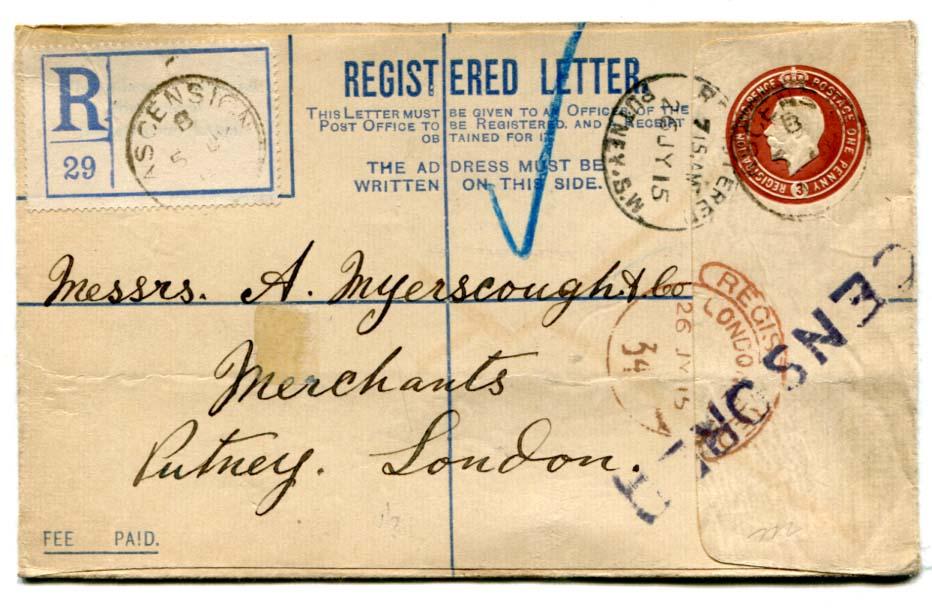 R
29
ASCENSION
B
REGISTERED LETTER.
THIS LETTER MUST BE GIVEN TO AN OFFICER OF THE
POST OFFICE TO BE REGISTERED, AND A RECEIPT
OBTAINED FOR IT.
THE ADDRESS MUST BE
WRITTEN ON THIS SIDE.
REGISTERED
7 15 AM
26 JY 15
PUTNEY. S.W.
REGISTRATION THREEPENCE POSTAGE ONE PENNY
3
Messrs. A. Myerscough & Co
Merchants
Putney. London.
REGISTERED
LONDON
26 JY 15
34
CENSOR
FEE PAID.